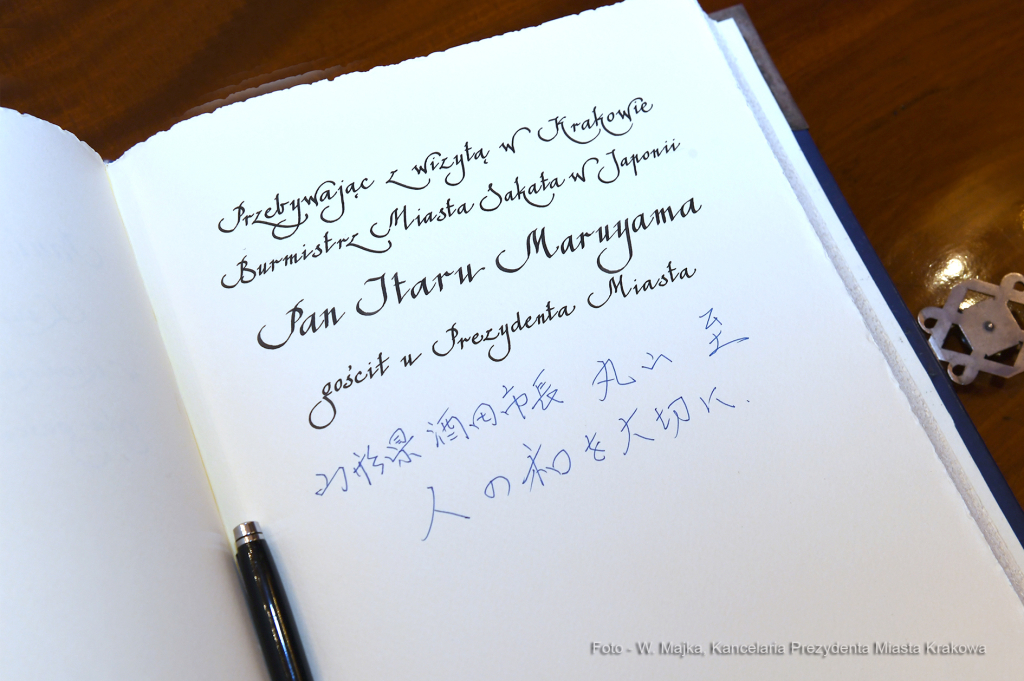 Przebywając z wizytą w Krakowie
Burmistrz Miasta Sakata w Japonii
Pan Itaru Maruyama
gościł u Prezydenta Miasta
山形県 酒田市長 丸山 至
人の和を大切に.
Foto - W. Majka, Kancelaria Prezydenta Miasta Krakowa